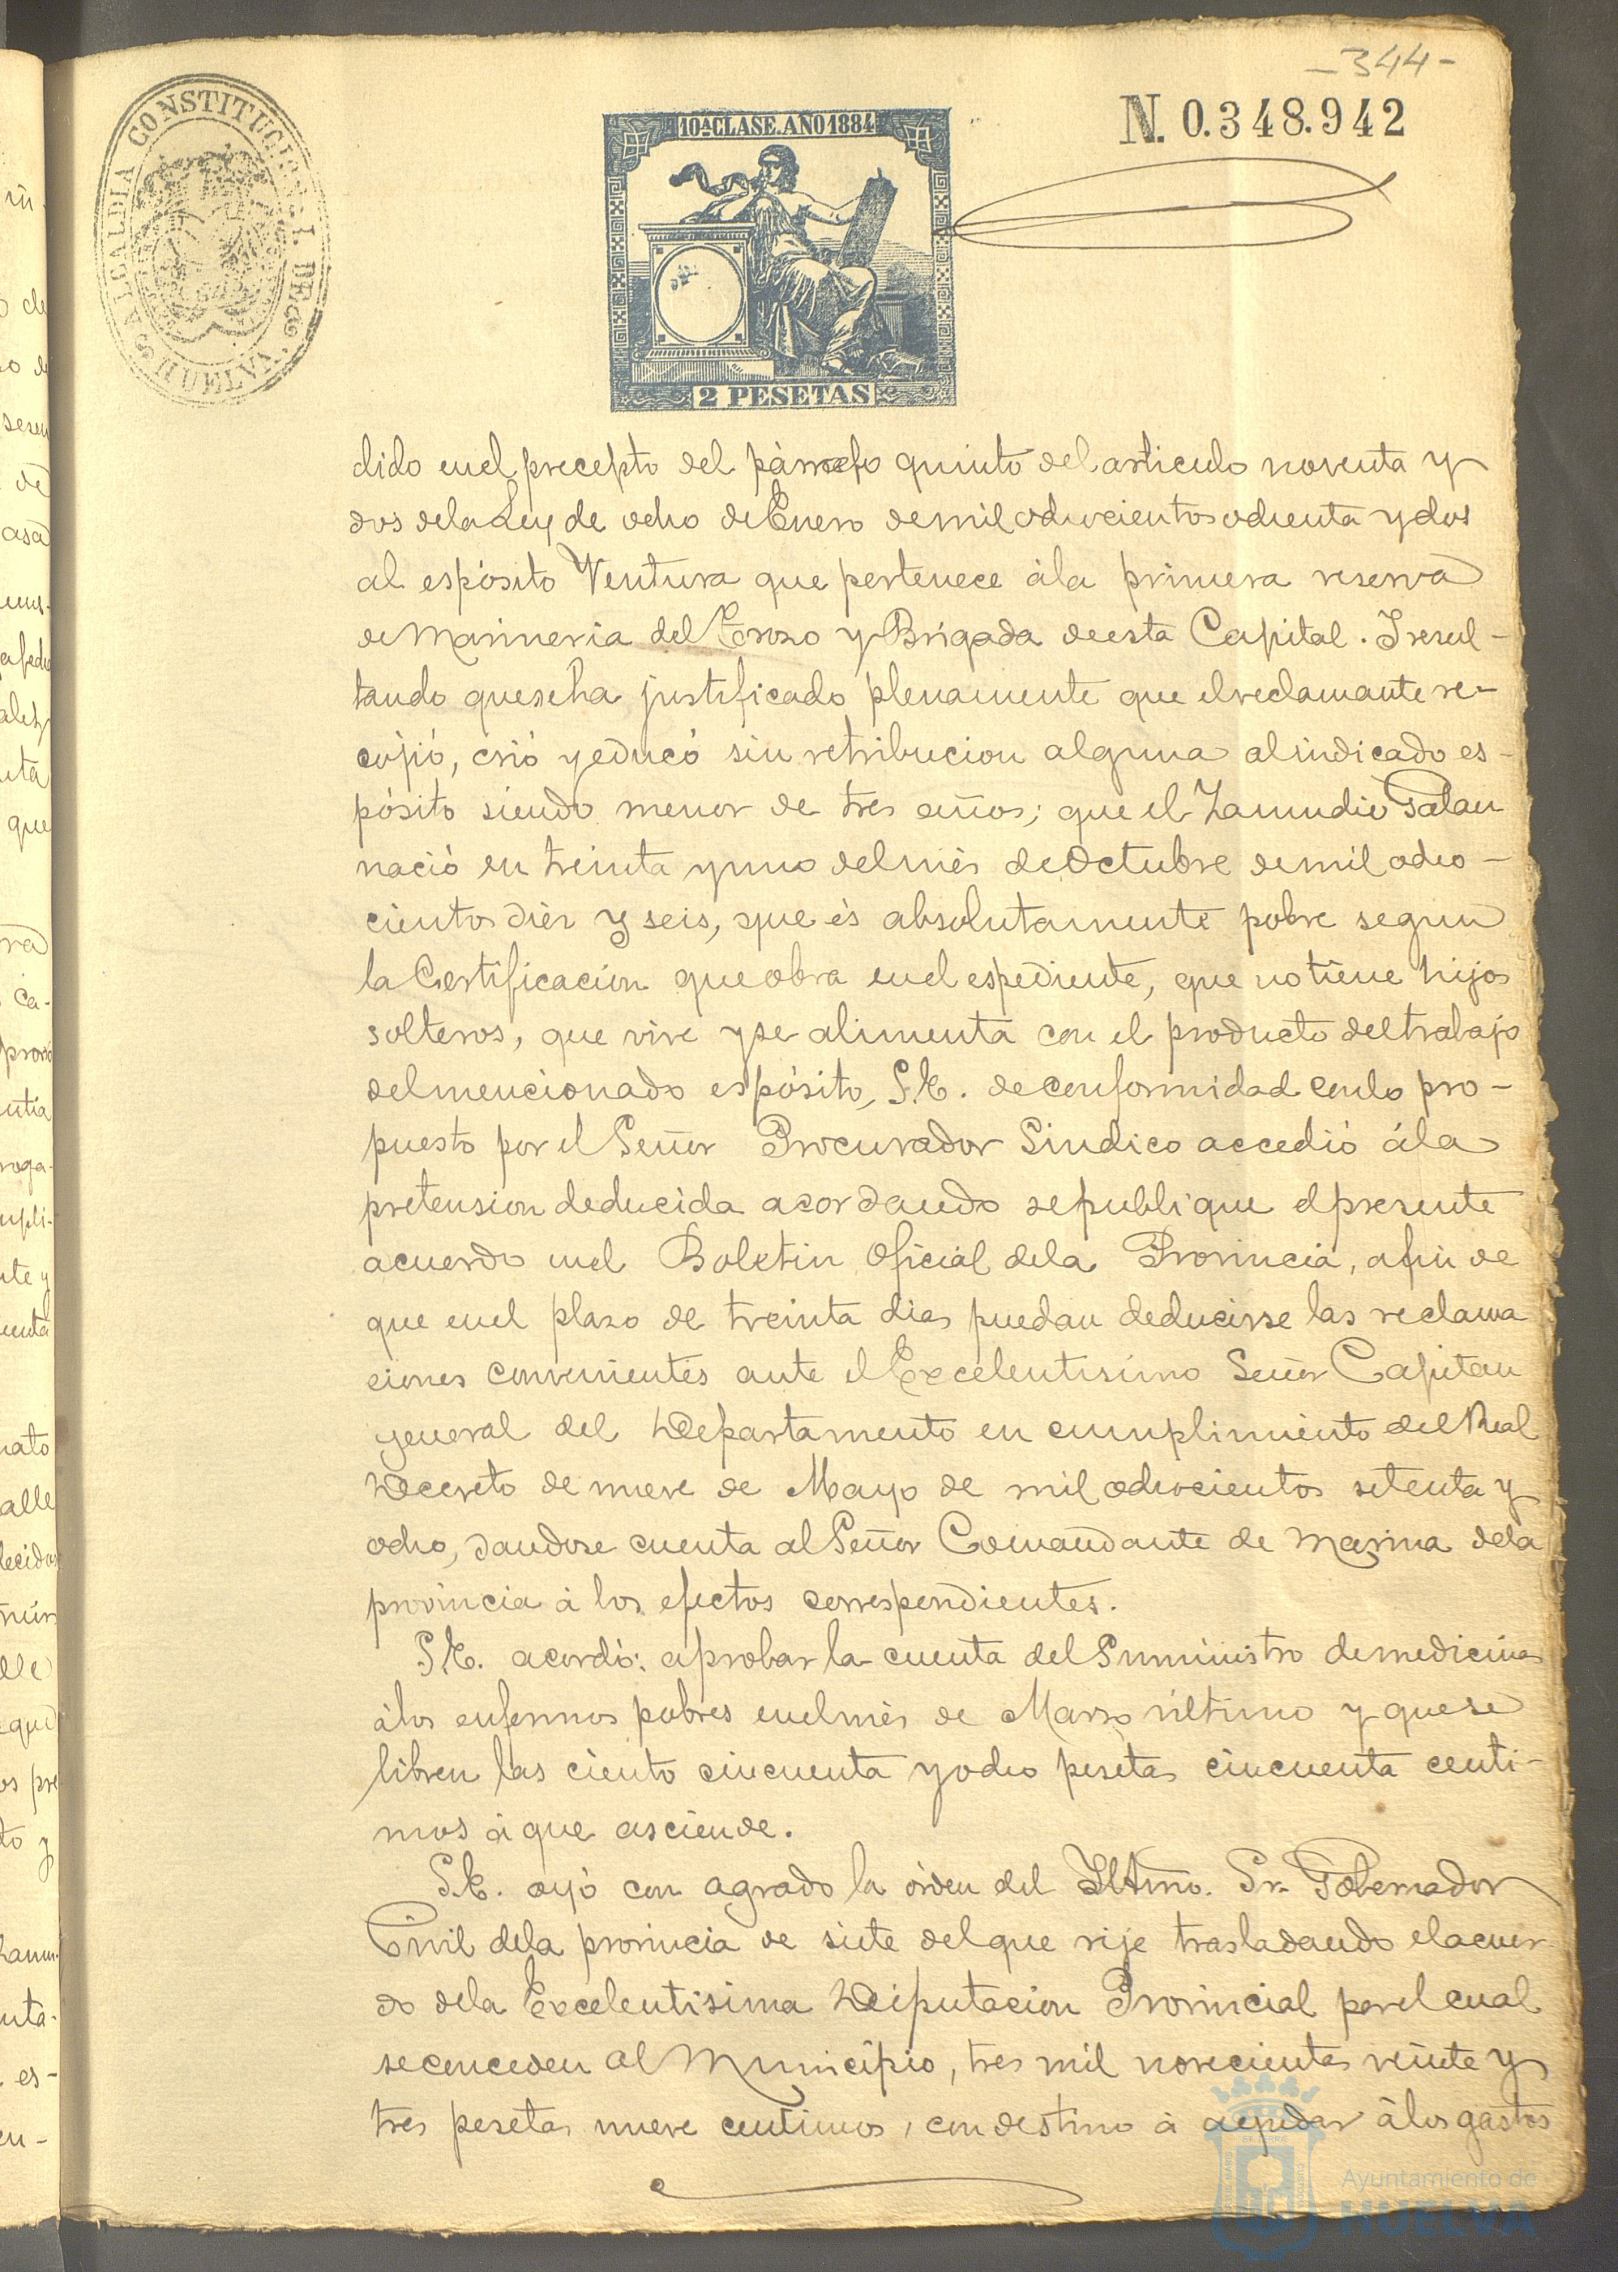 -344-
N. 0.348.942
ALCALDIA CONSTITUCIONAL DE HUELVA
10ª CLASE. AÑO 1884
2 PESETAS
dido en el precepto del párrafo quinto del articulo noventa y
dos de la Ley de ocho de Enero de mil ochocientos ochenta y dos
al espósito Ventura que pertenece á la primera reserva
de Marineria del Trozo y Brigada de esta Capital. Y resul-
tando que se ha justificado plenamente que el reclamante re-
cojió, crió y educó sin retribucion alguna al indicado es-
pósito siendo menor de tres años; que el Zamudio Galan
nació en treinta y uno del mes de Octubre de mil ocho-
cientos diez y seis, que és absolutamente pobre segun
la Certificacion que obra en el espediente, que no tiene hijos
solteros, que vive y se alimenta con el producto del trabajo
del mencionado espósito, S.E. de conformidad con lo pro-
puesto por el Señor Procurador Sindico accedió á la
pretension deducida acordando se publique el presente
acuerdo en el Boletin Oficial de la Provincia, a fin de
que en el plazo de treinta dias puedan deducirse las reclama
ciones convenientes ante el Excelentisimo Señor Capitan
general del Departamento en cumplimiento del Real
Decreto de nueve de Mayo de mil ochocientos setenta y
ocho, dandose cuenta al Señor Comandante de Marina de la
provincia á los efectos correspondientes.
S.E. acordó: aprobar la cuenta del Suministro de medicinas
á los enfermos pobres en el mes de Marzo último y que se
libren las ciento cincuenta y ocho pesetas cincuenta centi-
mos á que asciende.
S.E. oyó con agrado la órden del Iltmo. Sr. Gobernador
Civil de la provincia de siete del que rije trasladando el acuer
do de la Excelentisima Diputacion Provincial por el cual
se conceden al Municipio, tres mil novecientas veinte y
tres pesetas nueve centimos, con destino á ayudar á los gastos
Ayuntamiento de
HUELVA